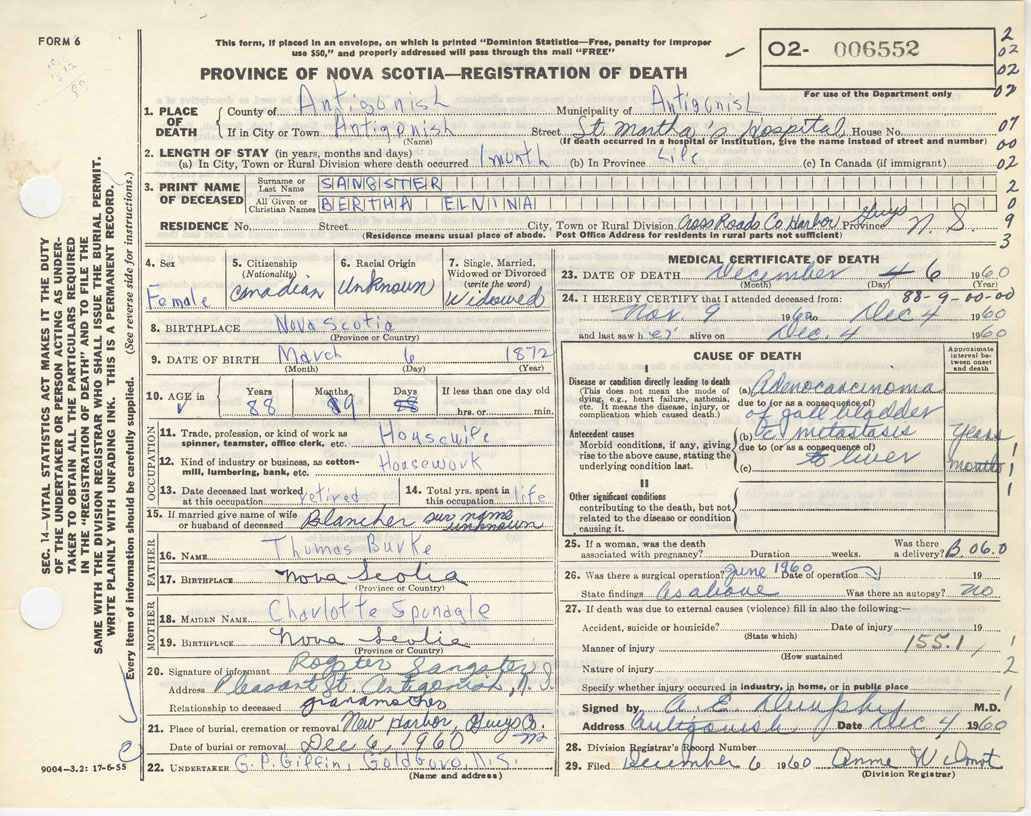 FORM 6
This form, if placed in an envelope, on which is printed "Dominion Statistics—Free, penalty for improper
use $50," and properly addressed will pass through the mail "FREE"
O2- 006552
For use of the Department only
2
02
02
02
07
00
02
2
0
9
3
PROVINCE OF NOVA SCOTIA—REGISTRATION OF DEATH
1. PLACE OF DEATH
County of Antigonish Municipality of Antigonish
If in City or Town Antigonish Street St. Martha's Hospital House No.
(Name) (If death occurred in a hospital or institution, give the name instead of street and number)
2. LENGTH OF STAY (in years, months and days)
(a) In City, Town or Rural Division where death occurred 1 month (b) In Province Life (c) In Canada (if immigrant)
3. PRINT NAME OF DECEASED
Surname or Last Name SANGSTER
All Given or Christian Names BERTHA ELNINA
RESIDENCE No. Street City, Town or Rural Division Cross Roads Co. Harbor, Guys Province N. S
(Residence means usual place of abode. Post Office Address for residents in rural parts not sufficient)
4. Sex Female
5. Citizenship (Nationality) Canadian
6. Racial Origin Unknown
7. Single, Married, Widowed or Divorced (write the word) Widowed
8. BIRTHPLACE Nova Scotia
(Province or Country)
9. DATE OF BIRTH March 6 1872
(Month) (Day) (Year)
10. AGE in Years 88 Months 9 Days If less than one day old hrs. or min.
OCCUPATION
11. Trade, profession, or kind of work as spinner, teamster, office clerk, etc. Housewife
12. Kind of industry or business, as cotton-mill, lumbering, bank, etc. Housework
13. Date deceased last worked at this occupation retired 14. Total yrs. spent in this occupation life
15. If married give name of wife or husband of deceased Blancher sur name unknown
FATHER
16. NAME Thomas Burke
17. BIRTHPLACE Nova Scotia
(Province or Country)
MOTHER
18. MAIDEN NAME Charlotte Sponagle
19. BIRTHPLACE Nova Scotia
(Province or Country)
20. Signature of informant Sangster
Address Pleasant St. Antigonish, N.S.
Relationship to deceased grandmother
21. Place of burial, cremation or removal New Harbor, Guys Co. NS
Date of burial or removal Dec 6, 1960
22. UNDERTAKER G. P. Giffin, Goldboro, N.S.
(Name and address)
MEDICAL CERTIFICATE OF DEATH
23. DATE OF DEATH December 4 6 1960
(Month) (Day) (Year)
88-9-00-00
24. I HEREBY CERTIFY that I attended deceased from:
Nov. 9 1960 to Dec 4 1960
and last saw her alive on Dec. 4 1960
CAUSE OF DEATH
Approximate interval between onset and death
I
Disease or condition directly leading to death
(This does not mean the mode of dying, e.g., heart failure, asthenia, etc. It means the disease, injury, or complication which caused death.)
(a) Adenocarcinoma
due to (or as a consequence of)
of gall bladder
Antecedent causes
Morbid conditions, if any, giving rise to the above cause, stating the underlying condition last.
(b) c metastasis years 1
due to (or as a consequence of)
to liver
(c) months 1
1
II
Other significant conditions
contributing to the death, but not related to the disease or condition causing it.
25. If a woman, was the death associated with pregnancy? Duration weeks. Was there a delivery? B. 06.0
26. Was there a surgical operation? June 1960 Date of operation 19
State findings as above Was there an autopsy? no
27. If death was due to external causes (violence) fill in also the following:—
Accident, suicide or homicide? Date of injury 19
(State which)
Manner of injury 155.1 1
(How sustained
Nature of injury 2
Specify whether injury occurred in industry, in home, or in public place 1
Signed by A. E. Dunphy M.D.
Address Antigonish Date Dec 4 1960
28. Division Registrar's Record Number
29. Filed December 6 1960 Anne Wilmot
(Division Registrar)
SEC. 14—VITAL STATISTICS ACT MAKES IT THE DUTY
OF THE UNDERTAKER OR PERSON ACTING AS UNDER-
TAKER TO OBTAIN ALL THE PARTICULARS REQUIRED
IN THE "REGISTRATION OF DEATH" AND TO FILE THE
SAME WITH THE DIVISION REGISTRAR WHO SHALL ISSUE THE BURIAL PERMIT.
WRITE PLAINLY WITH UNFADING INK. THIS IS A PERMANENT RECORD.
Every item of information should be carefully supplied. (See reverse side for instructions.)
9004-3.2: 17-6-55